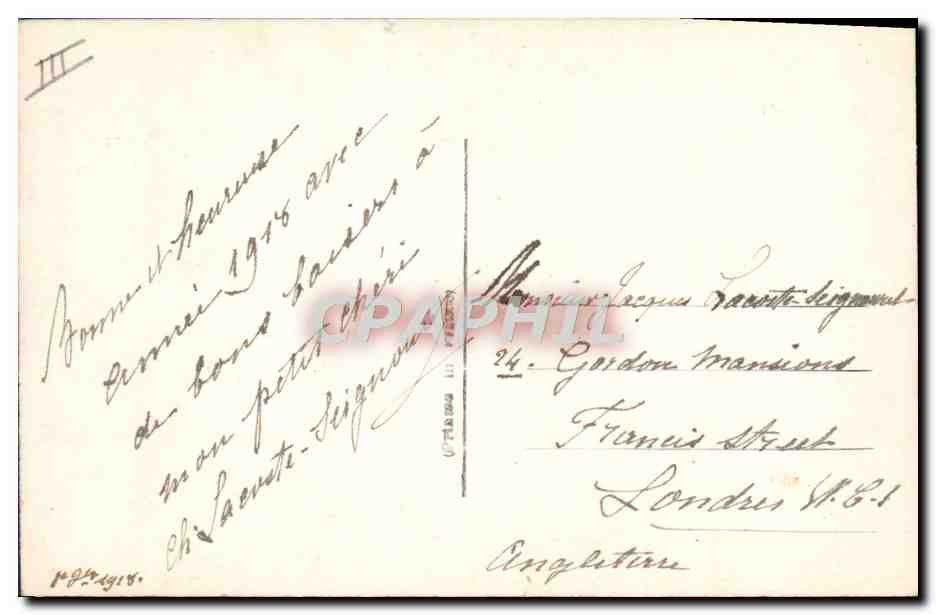 III
Bonne et heureuse
année 1918 avec
de bons baisers à
mon petit chéri
Ch. Lacoste-Seignouret
1er Jer 1918.
Monsieur Jacques Lacoste-Seignouret
24. Gordon Mansions
Francis Street
Londres W.C.1
Angleterre
CPAPHIL